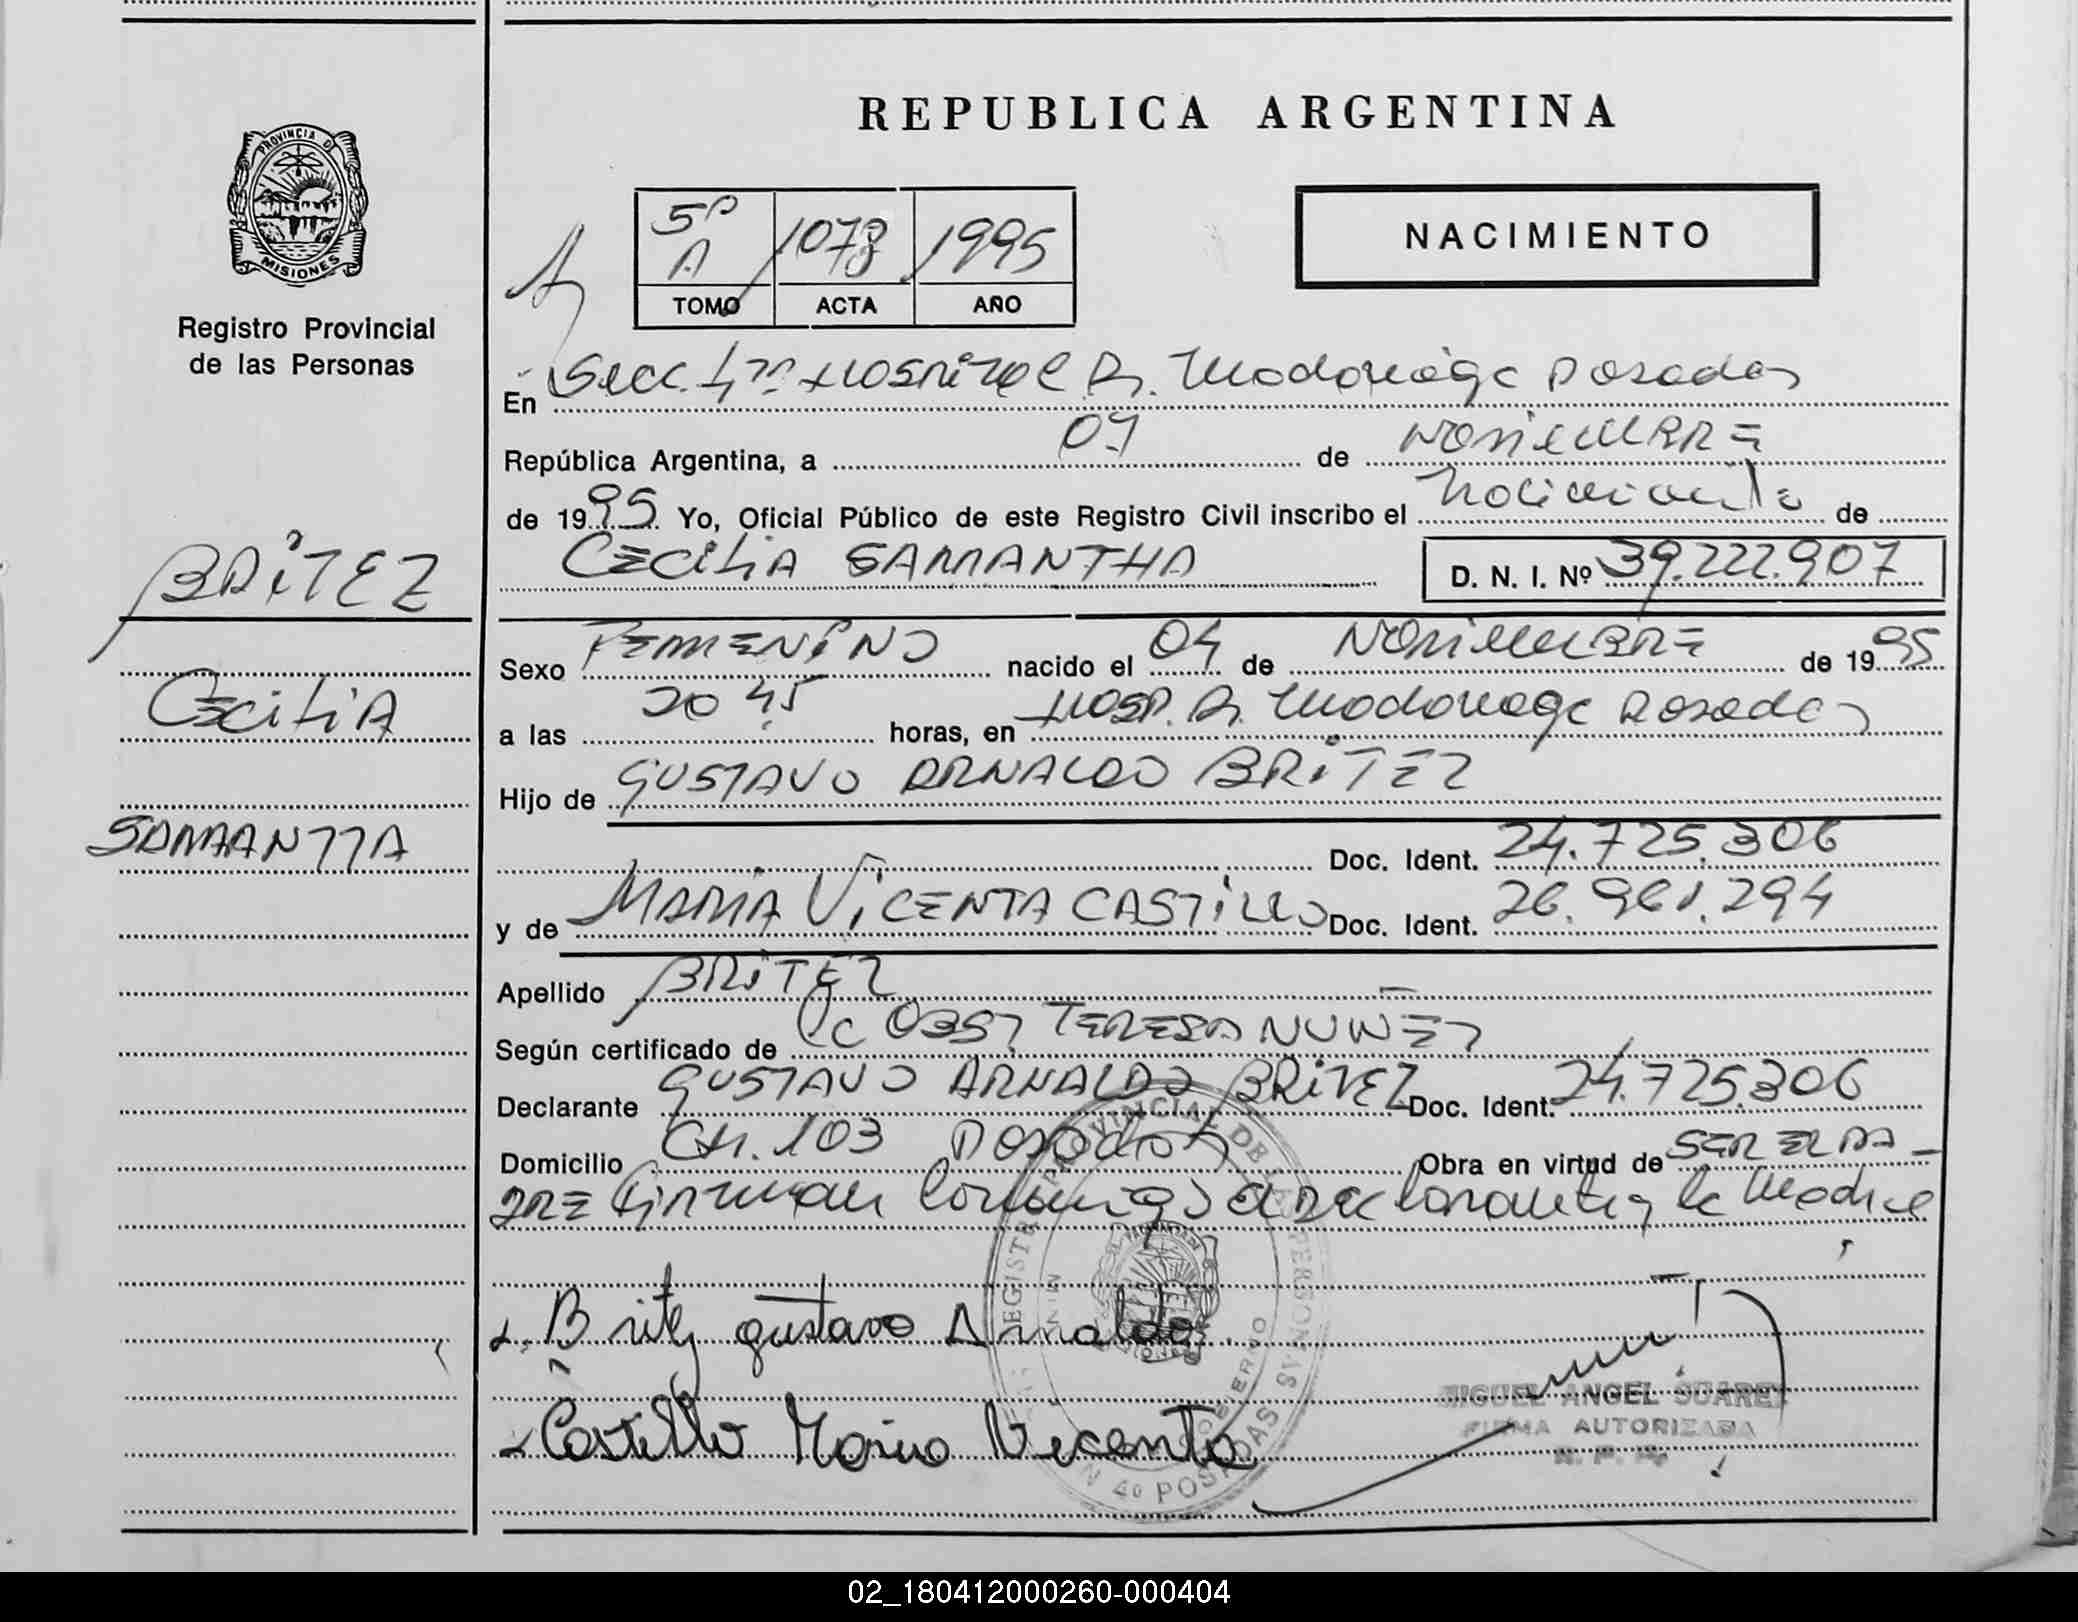 REPUBLICA ARGENTINA
PROVINCIA DE
MISIONES
Registro Provincial
de las Personas
NACIMIENTO
5º A 1078 1995
TOMO ACTA AÑO
En Secc. 4ta Hospital Dr. Madariaga Posadas
República Argentina, a 09 de NOVIEMBRE
de 1995 Yo, Oficial Público de este Registro Civil inscribo el Nacimiento de
CECILIA SAMANTHA D. N. I. Nº 39.222.907
BRITEZ
CECILIA
SAMANTHA
Sexo FEMENINO nacido el 04 de NOVIEMBRE de 1995
a las 20 45 horas, en HOSP. Dr. Madariaga Posadas
Hijo de GUSTAVO ARNALDO BRITEZ
Doc. Ident. 24.725.306
y de MARIA VICENTA CASTILLO Doc. Ident. 26.961.294
Apellido BRITEZ
Según certificado de OBST TERESA NUÑEZ
Declarante GUSTAVO ARNALDO BRITEZ Doc. Ident. 24.725.306
Domicilio CH. 103 Posadas Obra en virtud de SER EL PA-
DRE Firman conmigo el declarante y la madre
Britez gustavo Arnaldo
Castillo Maria Vicenta
MIGUEL ANGEL SUAREZ
FIRMA AUTORIZADA
R. P. P.
02_180412000260-000404